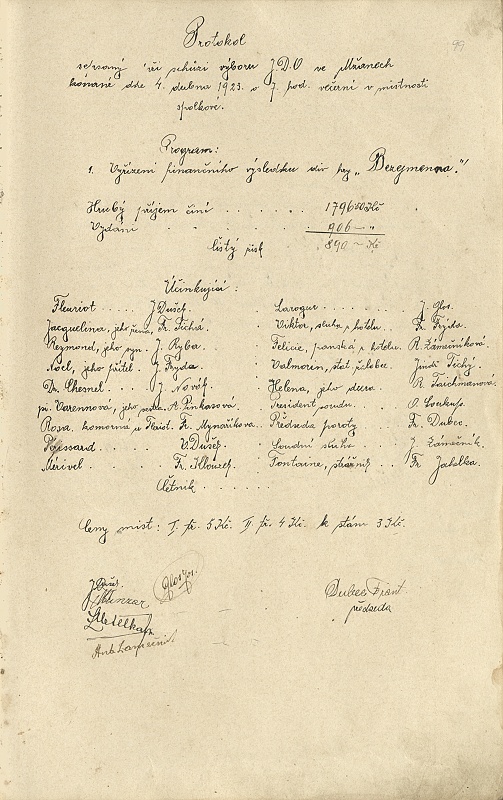 99
Protokol
sepsaný při schůzi výboru J.D.O ve Mžanech
konané dne 4. dubna 1923. o 7. hod. večerní v místnosti
spolkové.
Program:
1. Vyřízení finančního výsledku div. hry „Bezejmenná."
Hrubý příjem činí . . . . . 1796 Kč
Vydání . . . . 906 — "
čistý zisk 890 — Kč
Účinkující :
Fleuriot . . . . . J. Dušek. Laroque . . . . J. Glos.
Jacquelina, jeho žena, Fr. Tichá. Viktor, sluha v hotelu. Fr. Fryda.
Rezmond, jeho syn. J. Ryba. Felicie, panská v hotelu. R. Zámečníková.
Noel, jeho přítel. J. Fryda. Valmorin, stát. zástupce. Jindř. Tichý.
Dr. Chesnel . . . J. Novák. Helena, jeho dcera. R. Tachmanová.
pí. Varennová, jeho sestra. A. Pinkasová. President soudu. . . O. Loukup.
Rosa, komorná u Florist. F. Mynaříkova. Předseda poroty . . . Fr. Dubec.
Poissard . . . . . V. Dušek. Soudní sluha . . . J. Zámečník.
Mérivel . . . . Fr. Klouzek. Fontaine, strážník . . . Fr. Jahelka.
Četník . . . . . .
Ceny míst : I. tř. 5 Kč. II tř. 4 Kč. k stání 3 Kč.
J. Duš. Glos Jos.
Munzar
Metelka
Ant. Zámečník
Dubec Frant.
předseda